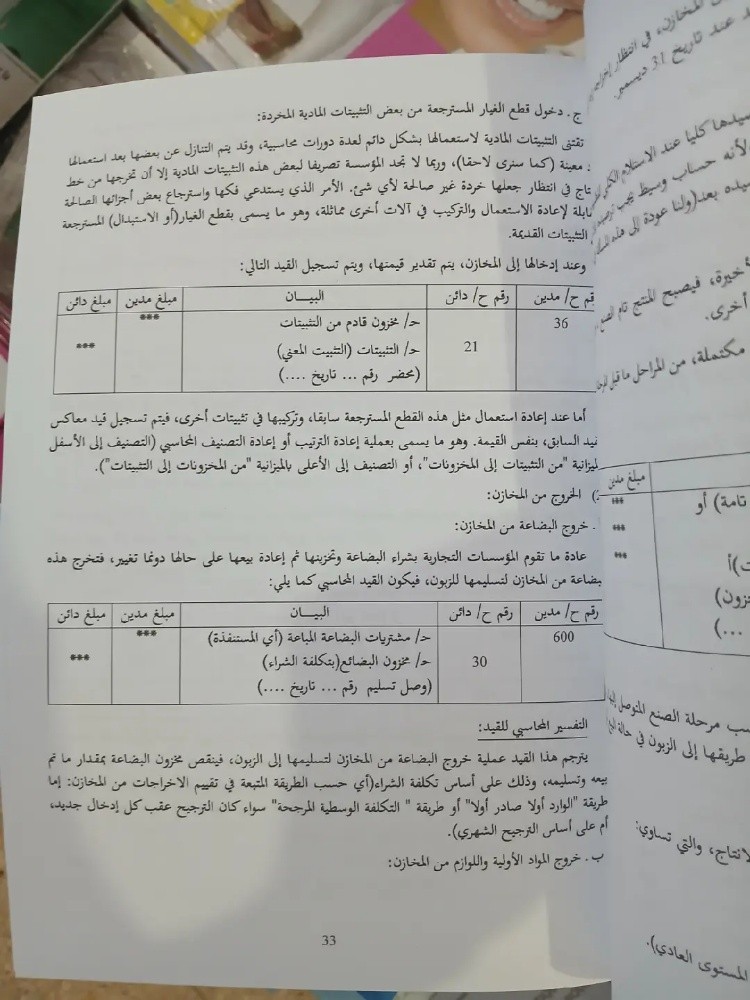 ج. دخول قطع الغيار المسترجعة من بعض التثبيتات المادية المخردة:
تقتنى التثبيتات المادية لاستعمالها بشكل دائم لعدة دورات محاسبية، وقد يتم التنازل عن بعضها بعد استعمالها
معينة (كما سنرى لاحقا)، وربما لا تجد المؤسسة تصريفا لبعض هذه التثبيتات المادية إلا أن تخرجها من خط
في انتظار جعلها خردة غير صالحة لأي شئ. الأمر الذي يستدعي فكها واسترجاع بعض أجزائها الصالحة
لإعادة الاستعمال والتركيب في آلات أخرى مماثلة، وهو ما يسمى بقطع الغيار(أو الاستبدال) المسترجعة
التثبيتات القديمة.
وعند إدخالها إلى المخازن، يتم تقدير قيمتها، ويتم تسجيل القيد التالي:
رقم ح/ مدين رقم ح/ دائن البيـــان مبلغ مدين مبلغ دائن
36 حـ/ مخزون قادم من التثبيتات ***
21 حـ/ التثبيتات (التثبيت المعني) ***
(محضر رقم ... تاريخ ....)
أما عند إعادة استعمال مثل هذه القطع المسترجعة سابقا، وتركيبها في تثبيتات أخرى، فيتم تسجيل قيد معاكس
السابق، بنفس القيمة. وهو ما يسمى بعملية إعادة الترتيب أو إعادة التصنيف المحاسبي (التصنيف إلى الأسفل
"من التثبيتات إلى المخزونات"، أو التصنيف إلى الأعلى بالميزانية "من المخزونات إلى التثبيتات").
) الخروج من المخازن:
. خروج البضاعة من المخازن:
عادة ما تقوم المؤسسات التجارية بشراء البضاعة وتخزينها ثم إعادة بيعها على حالها دونما تغيير، فتخرج هذه
من المخازن لتسليمها للزبون، فيكون القيد المحاسبي كما يلي:
رقم ح/ مدين رقم ح/ دائن البيـــان مبلغ مدين مبلغ دائن
600 حـ/ مشتريات البضاعة المباعة (أي المستنفذة) ***
30 حـ/ مخزون البضائع(بتكلفة الشراء) ***
(وصل تسليم رقم ... تاريخ ....)
التفسير المحاسبي للقيد:
يترجم هذا القيد عملية خروج البضاعة من المخازن لتسليمها إلى الزبون، فينقص مخزون البضاعة بمقدار ما تم
بيعه وتسليمه، وذلك على أساس تكلفة الشراء(أي حسب الطريقة المتبعة في تقييم الاخراجات من المخازن: إما
طريقة "الوارد أولا صادر أولا" أو طريقة " التكلفة الوسطية المرجحة" سواء كان الترجيح عقب كل إدخال جديد،
أم على أساس الترجيح الشهري).
ب. خروج المواد الأولية واللوازم من المخازن:
33
المخازن، في انتظار
عند تاريخ 31 ديسمبر.
كليا عند الاستلام
لأنه حساب وسيط يجب
بعد(ولنا عودة إلى هذه
فيصبح المنتج تام
أخرى.
مكتملة، من المراحل ما قبل
مبلغ مدين
تامة) أو ***
***
***
(...
مرحلة الصنع المتوصل
طريقها إلى الزبون في حالة
لانتاج، والتي تساوي:
المستوى العادي).